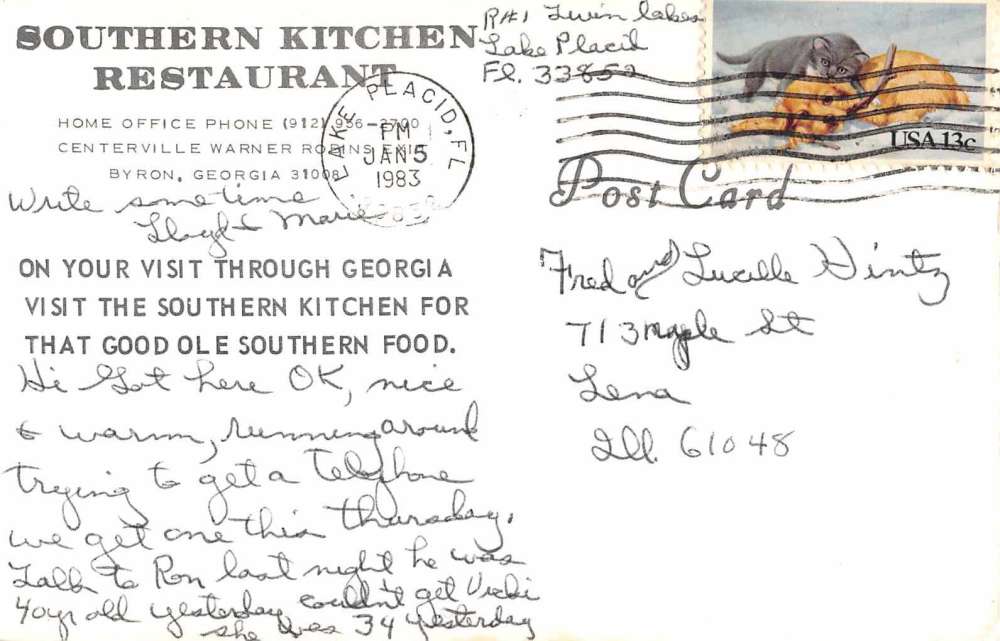 SOUTHERN KITCHEN
RESTAURANT
HOME OFFICE PHONE (912) 956-2700
CENTERVILLE WARNER ROBINS EXIT
BYRON, GEORGIA 31008
LAKE PLACID, FL
PM
JAN 5
1983
R#1 Twin lakes
Lake Placid
Fl. 33852
USA 13c
Post Card
Write sometime
Lloyd & Marie
ON YOUR VISIT THROUGH GEORGIA
VISIT THE SOUTHERN KITCHEN FOR
THAT GOOD OLE SOUTHERN FOOD.
Hi Got here OK, nice
& warm, running around
trying to get a Telephone
we get one this thursday.
Talk to Ron last night he was
40yr old yesterday couldn't get Vicki
she was 34 yesterday
Fred and Lucille Hintz
713 Maple St
Lena
Ill. 61048